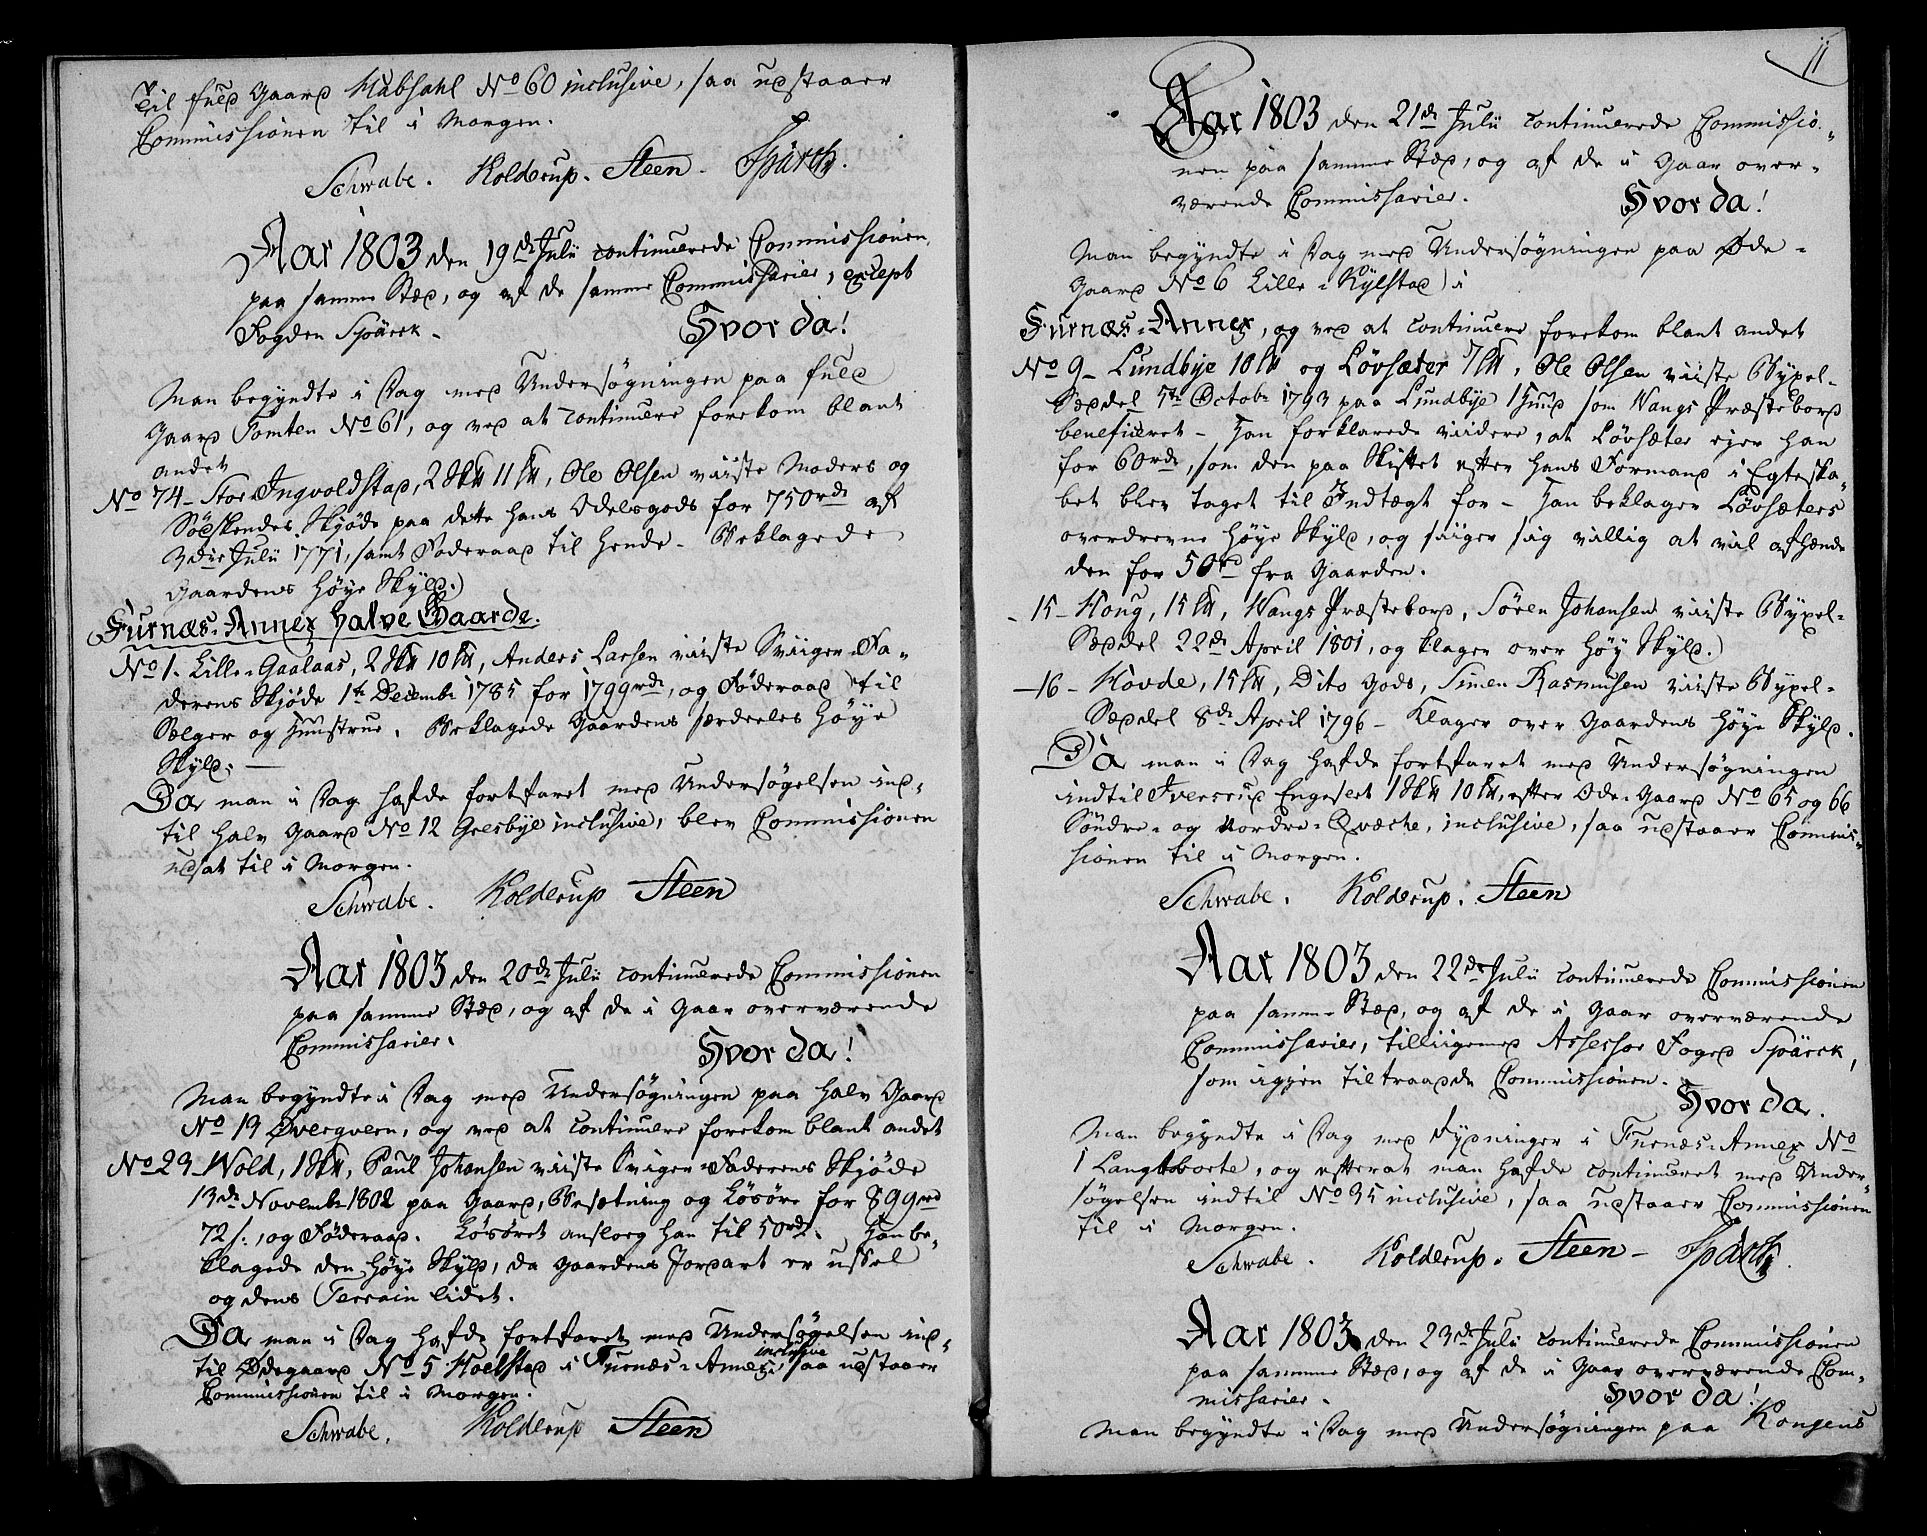 til fuld Gaard Kubsahl No 60 inclusive, saa udstaaer
Commissionen til i Morgen.
Schwabe. Kolderup. Steen. Spärck.
Aar 1803 den 19de Julii continuerede Commissionen,
paa samme Stæd, og af de samme Commissarier, except
Fogden Spärck.
Hvor da!
Man begyndte i Dag med Undersøgningen paa fuld
Gaard Tomten No 61, og ved at continuere forekom blant
andet
No 74 – Stor-Ingvoldstad, 2 11, Ole Olsen viiste Moders og
Sødskendes Skjøde paa dette hans Odelsgods for 750rd af
3die Julii 1771, samt Føderaad til hende. Beklagede
Gaardens høye Skyld.)
Furnæs-Annex halve Gaarde.
No 1. Lille-Gaalaas, 2 10, Anders Larsen viiste Sviger-Fa-
derens Skjøde 1te Decembr 1785 for 1799rd, og Føderaad til
Sælger og Huustrue. Beklagede Gaardens særdeeles høye
Skyld. –
Da man i Dag hafde fortfaret med Undersøgelsen ind-
til halv Gaard No 12 Gresbye inclusive, blev Commissionen
udsat til i Morgen.
Schwabe. Kolderup Steen
Aar 1803 den 20de Julii continuerede Commissionen
paa samme Stæd, og af de i Gaar overværende
Commissarier.
Hvor da!
Man begyndte i Dag med Undersøgningen paa halv Gaard
No 13 Overqvern, og ved at continuere forekom blant andet
No 23 Wold, 1, Paul Johansen viiste Sviger-Faderens Skjøde
13de Novembr 1802 paa Gaard, Besætning og Løsøre for 899rd
72 s., og Føderaad. Løsøret ansloeg han til 50rd. Han be-
klagede den høye Skyld, da Gaardens Jordart er ussel
og dens Terrain lidet.
Da man i Dag hafde fortfaret med Undersøgelsen ind-
til Ødegaard No 5 Hoelstad i Furnæs-Annex, inclusive saa udstaaer
Commissionen til i Morgen.
Schwabe. Kolderup Steen
11
Aar 1803 den 21de Julii continuerede Commissio-
nen paa samme Stæd, og af de i Gaar over-
værende Commissarier.
Hvor da!
Man begyndte i Dag med Undersøgningen paa Øde-
Gaard No 6 Lille-Kylstad i
Furnæs-Annex, og ved at continuere forekom blant andet
No 9 – Lundbye 10 og Løvsæter 7, Ole Olsen viiste Bygsel-
Sæddel 5te Octobr 1793 paa Lundbye 1 Huud som Wangs Præstebord
beneficeret – Han forklarede viidere, at Løvsæter ejer han
for 60rd, som den paa Skiftet efter hans Formand i Egteska-
bet blev taget til Indtægt for – Han beklager Løvsæters
overdrevne høye Skyld, og siiger sig villig at vil afhænde
den for 50rd fra Gaarden.
– 15 – Houg, 15, Wangs Præstebord, Sören Johansen viiste Bygsel-
Sæddel 22de April 1801, og klager over høy Skyld.)
– 16 – Hovde, 15, Dito Gods, Simen Rasmusen viiste Bygsel-
Sæddel 8de April 1796 – Klager over Gaardens høye Skyld.
Da man i Dag hafde fortfaret med Undersøgningen
indtil Iversrud Engeslet 1 10, efter Øde-Gaard No 65 og 66
Söndre- og Nordre-Qvæche, inclusive, saa udstaaer Commis-
sionen til i Morgen.
Schwabe. Kolderup. Steen
Aar 1803 den 22de Julii continuerede Commissionen
paa samme Stæd, og af de i Gaar overværende
Commissarier, tilligemed Assessor Foged Spärck,
som igjen tiltraadde Commissionen.
Hvor da.
Man begyndte i Dag med Rydninger i Furnæs-Annex No
1 Langtborte, og efterat man hafde continueret med Under-
søgelsen indtil No 35 inclusive, saa udstaaer Commissionen
til i Morgen.
Schwabe. Kolderup. Steen – Spärck.
Aar 1803 den 23de Julii continuerede Commissionen
paa samme Stæd, og af de i Gaar overværende Com-
missarier.
Hvor da!
Man begyndte i Dag med Undersøgningen paa Kongens